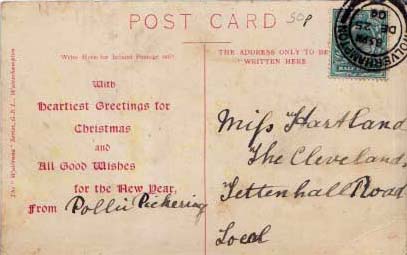 POST CARD
50p
Write Here for Inland Postage only
THE ADDRESS ONLY TO BE
WRITTEN HERE
WOLVERHAMPTON
DE
06
With
Heartiest Greetings for
Christmas
and
All Good Wishes
for the New Year,
From Pollie Pickering
Miss Hartland
The Clevelands
Tettenhall Road
Local
The " Wulfruna " Series, G. & J., Wolverhampton